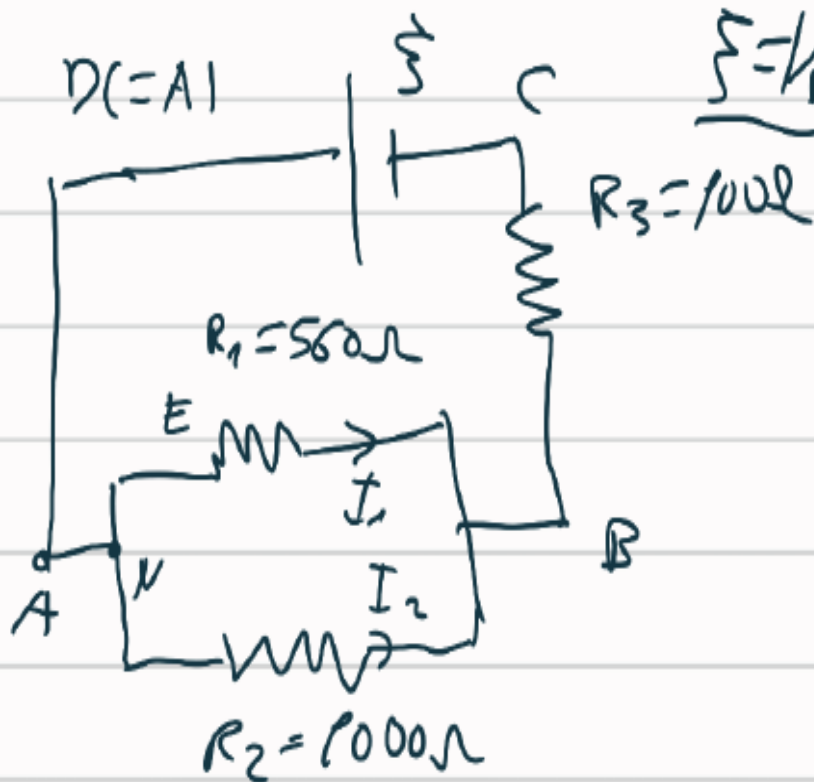 D(=A)
ξ
C
ξ=V
R₃=100Ω
R₁=560Ω
E
I₁
A
N
B
I₂
R₂=1000Ω